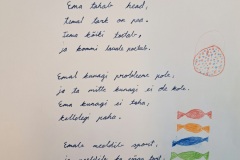 Ema tahab head,
temal tark on pea.
Tema kõiki toidab,
ja kommi lauale poetab.
Emal kunagi probleeme pole,
ja ta mitte kunagi ei ole kole.
Ema kunagi ei taha,
kellelegi paha.
Emale meeldib sport,
ja